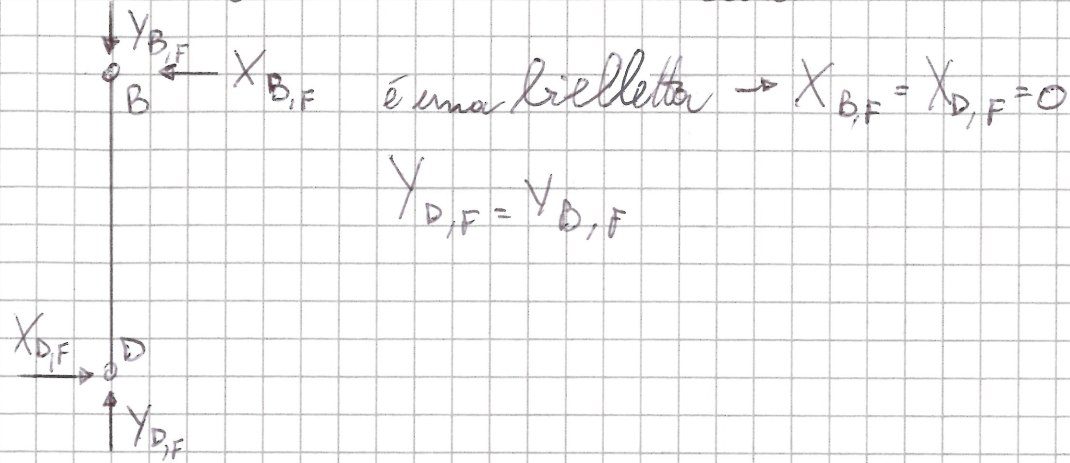 Y_B,F
B
X_B,F
é una bielletta → X_B,F = X_D,F = 0
Y_D,F = Y_B,F
X_D,F
D
Y_D,F